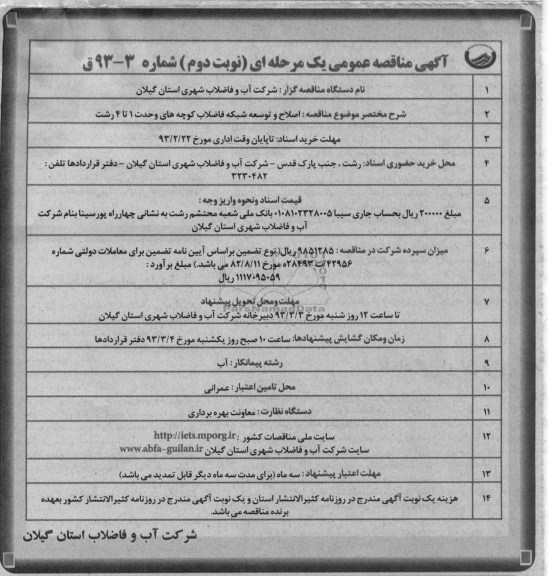 آگهی مناقصه عمومی یک مرحله ای (نوبت دوم) شماره ۳-۹۳ق
۱ نام دستگاه مناقصه گزار: شرکت آب و فاضلاب شهری استان گیلان
۲ شرح مختصر موضوع مناقصه: اصلاح و توسعه شبکه فاضلاب کوچه های وحدت ۱ تا ۴ رشت
۳ مهلت خرید اسناد: تاپایان وقت اداری مورخ ۹۳/۲/۲۲
۴ محل خرید حضوری اسناد: رشت، جنب پارک قدس - شرکت آب و فاضلاب شهری استان گیلان - دفتر قراردادها تلفن:
۳۲۳۰۴۸۲
۵ قیمت اسناد ونحوه واریز وجه:
مبلغ ۲۰۰۰۰۰ ریال بحساب جاری سیبا ۰۱۰۸۱۰۲۳۲۸۰۰۵ بانک ملی شعبه محتشم رشت به نشانی چهارراه پورسینا بنام شرکت
آب و فاضلاب شهری استان گیلان
۶ میزان سپرده شرکت در مناقصه: ۹۸۵۱۲۸۵ ریال(نوع تضمین براساس آیین نامه تضمین برای معاملات دولتی شماره
۴۲۹۵۶/ت۲۸۴۹۳ه مورخ ۸۲/۸/۱۱ می باشد.) مبلغ برآورد:
۱۱۱۷۰۹۵۰۵۹ ریال
۷ مهلت ومحل تحویل پیشنهاد
تا ساعت ۱۲ روز شنبه مورخ ۹۳/۳/۳ دبیرخانه شرکت آب و فاضلاب شهری استان گیلان
ParsNamadData
۸ زمان ومکان گشایش پیشنهادها: ساعت ۱۰ صبح روز یکشنبه مورخ ۹۳/۳/۴ دفتر قراردادها
۹ رشته پیمانکار: آب
۱۰ محل تامین اعتبار: عمرانی
۱۱ دستگاه نظارت: معاونت بهره برداری
۱۲ سایت ملی مناقصات کشور: http://iets.mporg.ir
سایت شرکت آب و فاضلاب شهری استان گیلان www.abfa-guilan.ir
۱۳ مهلت اعتبار پیشنهاد: سه ماه (برای مدت سه ماه دیگر قابل تمدید می باشد)
۱۴ هزینه یک نوبت آگهی مندرج در روزنامه کثیرالانتشار استان و یک نوبت آگهی مندرج در روزنامه کثیرالانتشار کشور بعهده
برنده مناقصه می باشد.
شرکت آب و فاضلاب استان گیلان